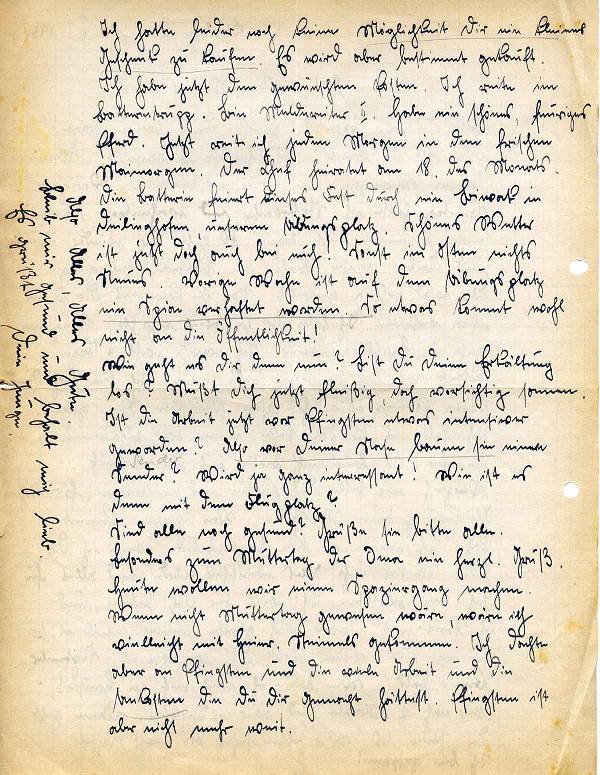 Ich hatte leider noch keine Möglichkeit Dir ein kleines
Geschenk zu kaufen. Es wird aber bestimmt gekauft.
Ich habe jetzt den gewünschten Posten. Ich reite im
Batterietrupp. Bin Meldereiter II. Habe ein schönes, feuriges
Pferd. Jetzt reit ich jeden Morgen in den frischen
Maimorgen. Der Chef heiratet am 18. des Monats.
Die Batterie feiert dieses Fest durch ein Biwak in
unserem Übungsplatz. Schönes Wetter
ist jetzt doch auch bei mir. Sonst im Osten nichts
Neues. Vorige Woche ist auf dem Übungsplatz
ein Spion verhaftet worden. So etwas kommt wohl
nicht an die Öffentlichkeit!
Wie geht es Dir denn nun? Bist Du Deine Erkältung
los? Mußt Dich jetzt fleißig, doch vorsichtig sonnen.
Ist die Arbeit jetzt vor Pfingsten etwas intensiver
geworden? Also vor Deiner Nase bauen sie einen
Sender
Sender? Wird ja ganz interessant! Wie ist es
denn mit dem Flugplatz?
Sind alle noch gesund? Grüße sie bitte alle.
Besonders zum Muttertag der Oma ein herzl. Gruß.
Heute wollen wir einen Spaziergang machen.
Wenn nicht Muttertag gewesen wäre, wäre ich
vielleicht mit Heiner gekommen. Ich dachte
aber an Pfingsten und die viele Arbeit und die
Unkosten die Du Dir gemacht hättest. Pfingsten ist
aber nicht mehr weit.
Also Alles, Alles Gute.
Bleib mir gesund und behalt mich lieb.
Es grüßt
Dein Junge.